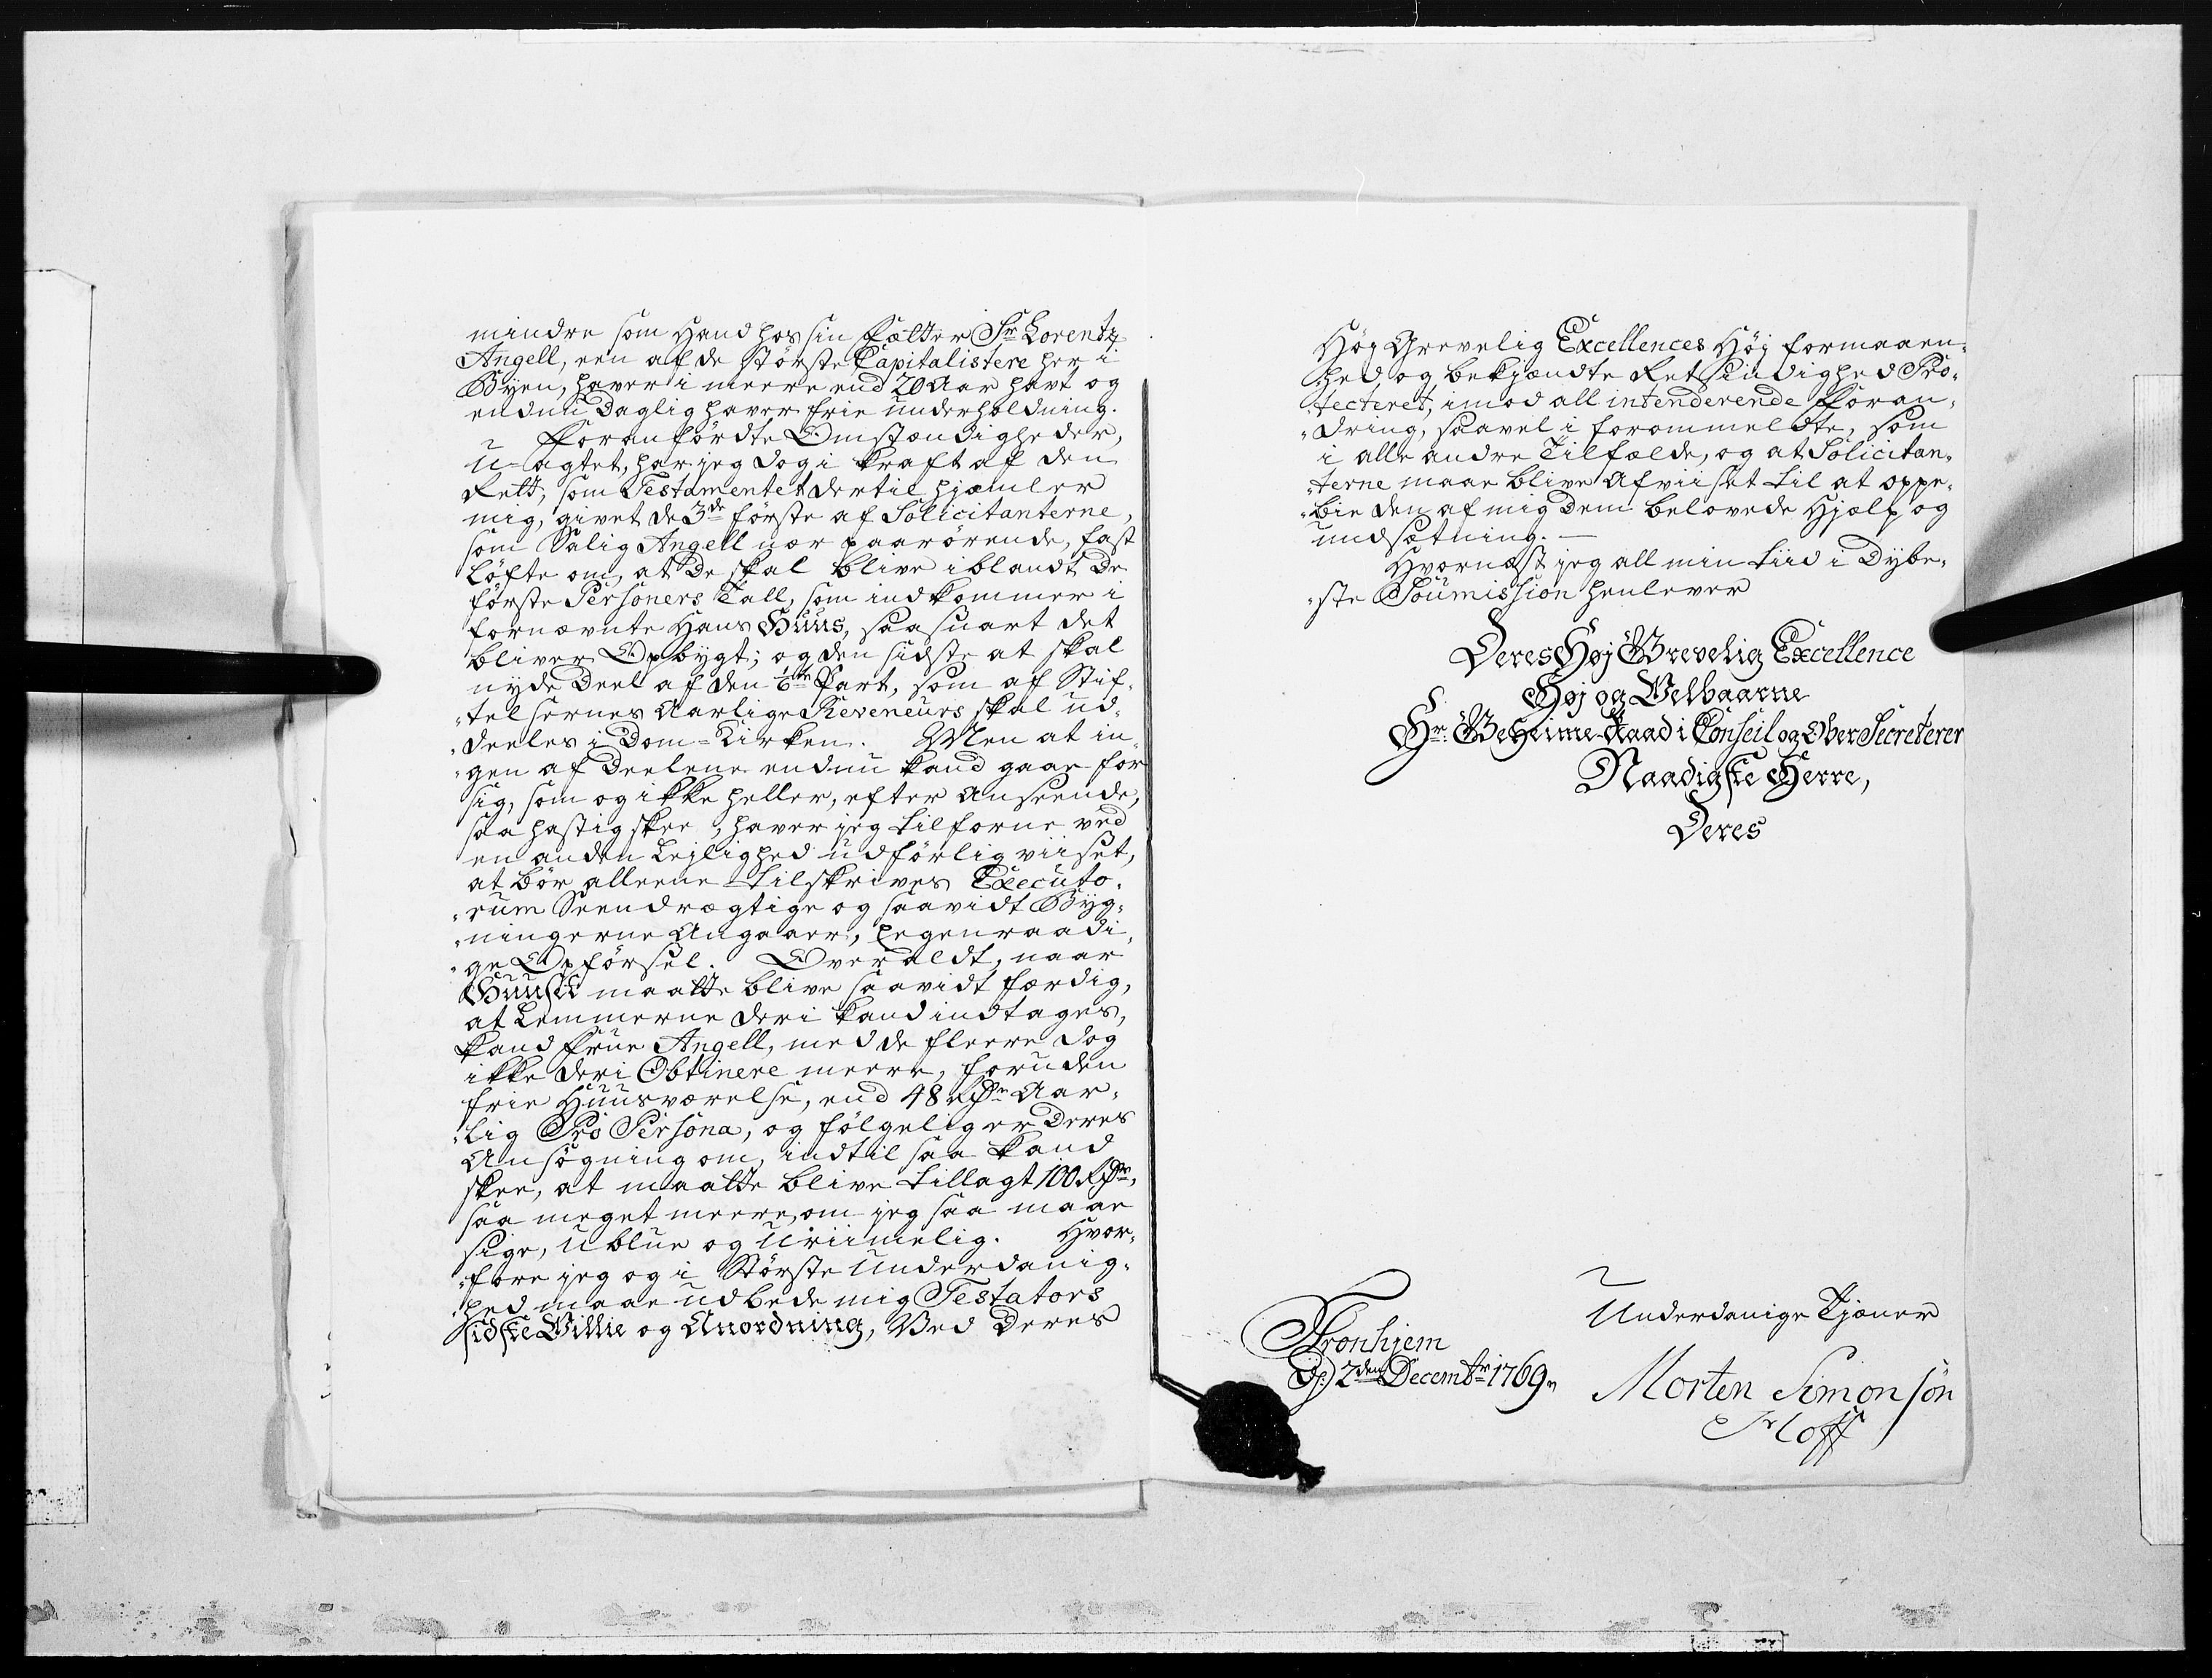 mindre som Hand hos sin Fætter Sr Lorentz
Angell, een af de største Capitalistere her i
Byen, haver i meere end 20 Aar havt og
endnu Daglig haver frie underholdning.
Foranførdte Omstændigheder,
U-agtet, har jeg dog i kraft af den
Rett, som Testamentet dertil hjemler
mig, givet de 3de første af Solicitanterne,
som Salig Angell nær paarørende, fast
Løfte om, at De skal blive iblandt De
første Personers Tall, som indkommer i
fornævnte Hans Huus, saasnart det
bliver Opbygt; og den sidste at skal
nyde Deel af den 1/6te Part, som af Stif-
-telsernes Aarlige Reveneurs skal ud-
-deeles i Dom-Kirken. Men at in-
-gen af Deelene endnu kand gaae for
sig, som og ikke heller, efter Anseende,
saa hastig skee, haver jeg tilforne ved
en anden Lejlighed udførlig viiset,
at bør alleene tilskrives Executo-
-rum Seendrægtige og saavidt Byg-
-ningerne Angaaer, Eegenraadi-
-ge Opførsel. Overaldt, naar
Huuset maatte blive saavidt færdig,
at Lemmerne deri kand indtages,
kand Frue Angell, med de fleere dog
ikke deri Obtinere meere, foruden
frie Huusværelse, end 48 Rdr Aar-
-lig Pro Persona, og følgelig er Deres
Ansøgning om, indtil saa kand
skee, at maatte blive tillagt 100 Rdr,
saa meget meere, om jeg saa maae
sige, Ublue og Uriimelig. Hvor-
-fore jeg og i Største Underdanig-
-hed maae udbede mig Testators
sidste Villie og Anordning, Ved Deres
Høj Grevelig Excellences Høj formaaen-
-hed og bekjændte Retsindighed Pro-
-tecteret, imod all intenderende Foran-
-dring, saavel i forommeldte, som
i alle andre Tilfælde, og at Solicitan-
-terne maae blive Afviiset til at oppe-
-bie den af mig Dem belovede Hjælp og
undsætning.
Hvornæst jeg all min tiid i Dybe-
-ste Soumission henlever
Deres Høj Grevelig Excellence
Høj og Velbaarne
Hr. Geheime-Raad i Conseil og Over Secreterer
Naadigste Herre,
Deres
Underdanige Tjæner
Tronhjem
D: 2den Decembr 1769.
Morten Simonsøn
Hoff